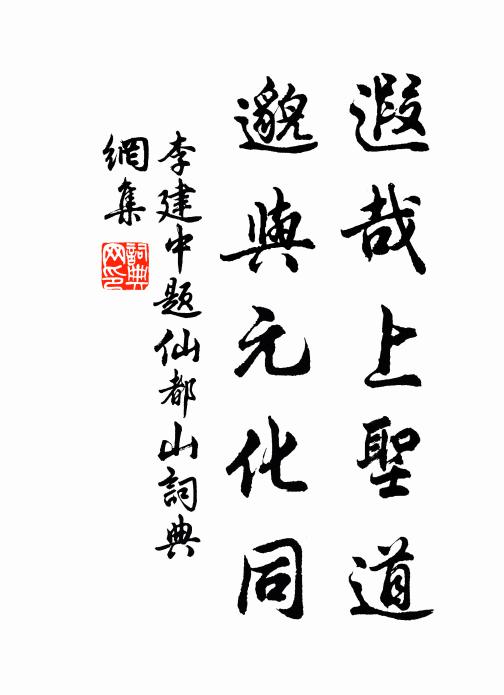 遐哉上聖道
邈與元化同
李建中題仙都山詞典
網集
詞典網印